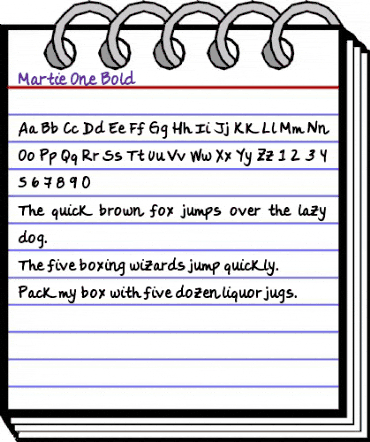 Martie One Bold
Aa Bb Cc Dd Ee Ff Gg Hh Ii Jj Kk Ll Mm Nn
Oo Pp Qq Rr Ss Tt Uu Vv Ww Xx Yy Zz 1 2 3 4
5 6 7 8 9 0
The quick brown fox jumps over the lazy
dog.
The five boxing wizards jump quickly.
Pack my box with five dozen liquor jugs.